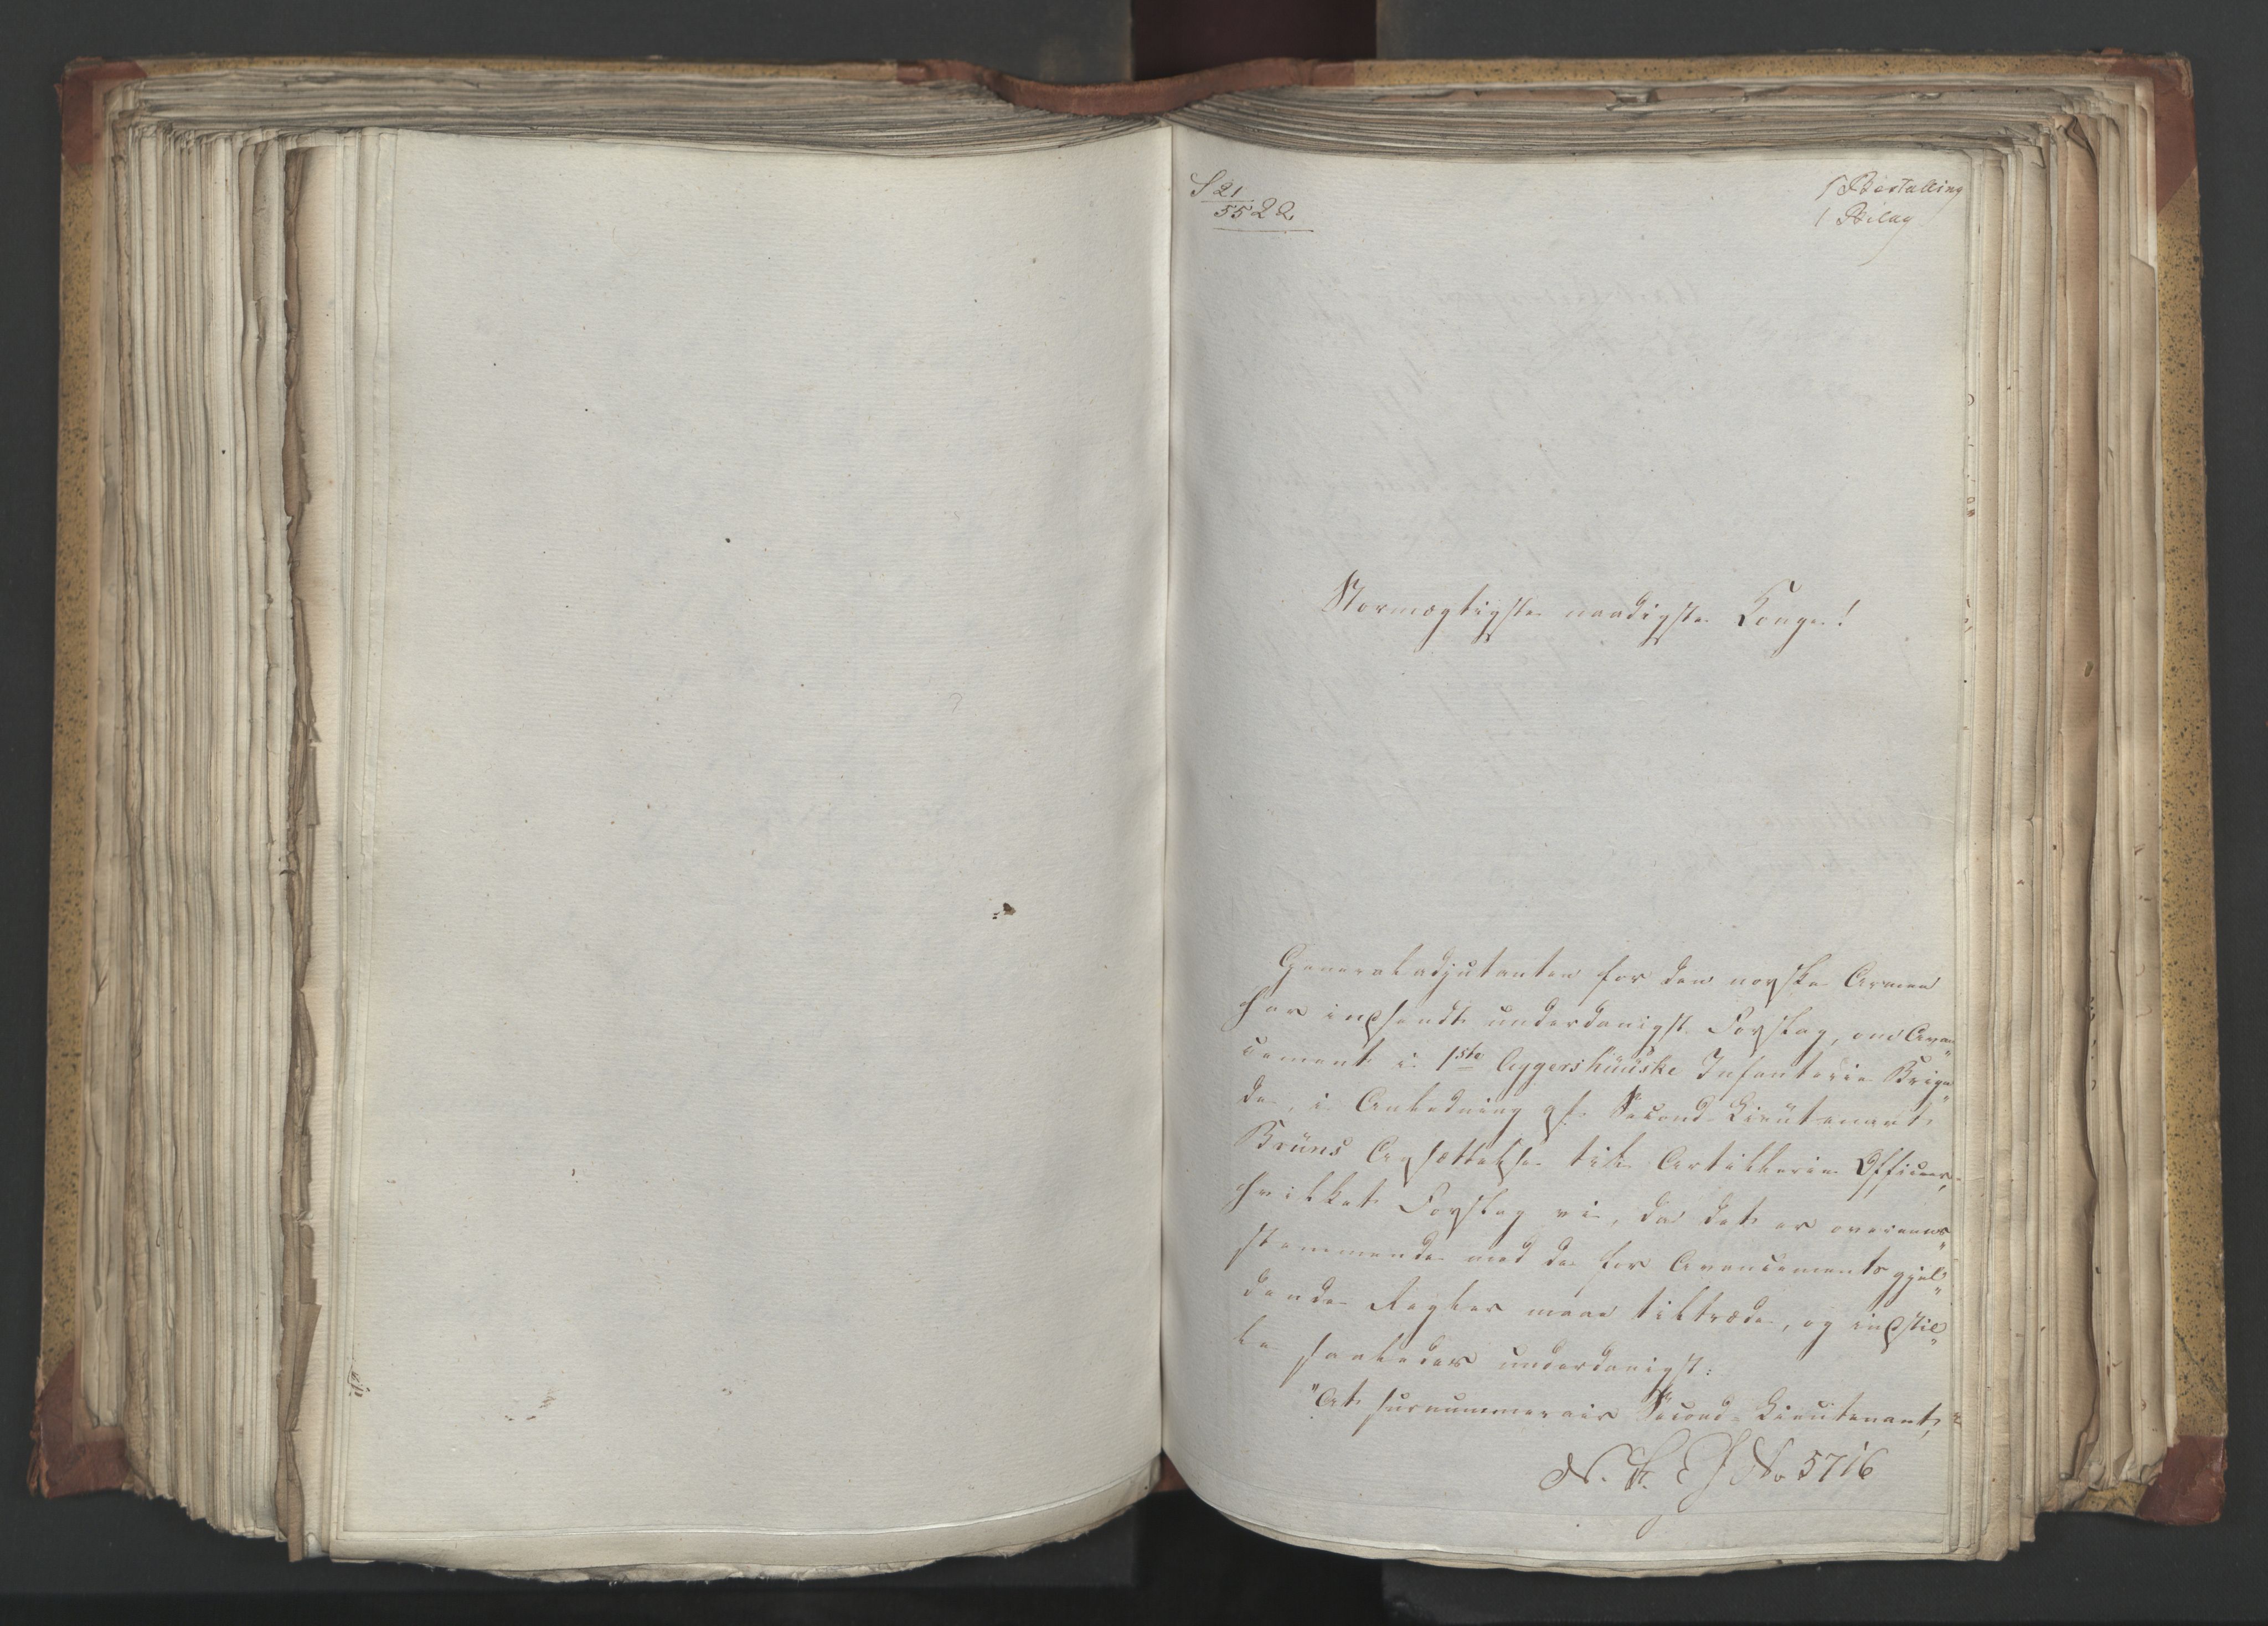 S 21
5522
1 Bestalling
1 Bilag
Stormægtigste naadigste Konge!
Generaladjutanten for den norske Armee
har indsendt underdanigst Forslag, om Avan„
cement i 1ste Aggershuuske Infanterie Briga„
de, i Anledning af Second Lieutenant
Bruns Ansættelse til Artillerie Officeer,
hvilket Forslag vi, da det er overeens„
stemmende med de for Avancements gjel„
dende Regler maae tiltræde, og indstil„
le saaledes underdanigst:
"At surnummerair Second-Lieutenant,
No 5716